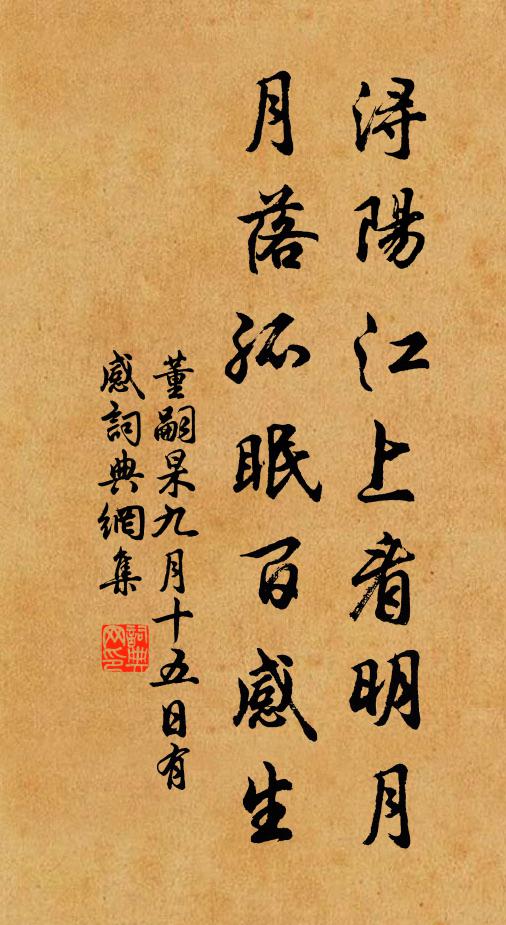 浔陽江上看明月
月落孤眠百感生
董嗣杲九月十五日有
感詞典網集
詞典
网印